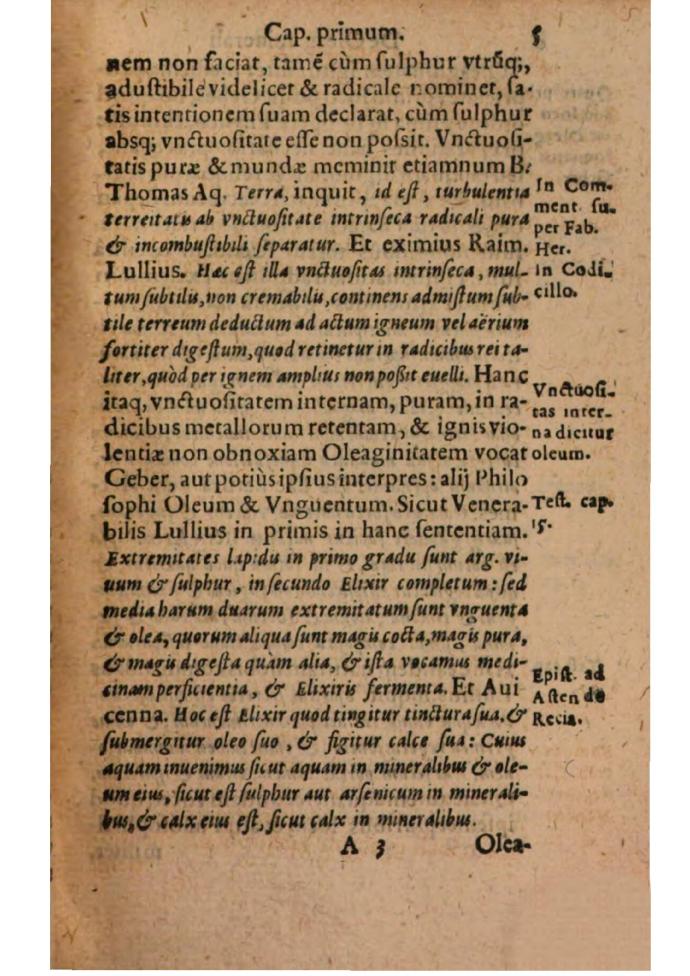 Cap. primum. 5
nem non faciat, tamē cùm ſulphur vtrũq;,
aduſtibile videlicet & radicale nominet, ſa-
tis intentionem ſuam declarat, cùm ſulphur
absq; vnctuoſitate eſſe non poſsit. Vnctuoſi-
tatis puræ & mundæ meminit etiamnum B.
Thomas Aq. Terra, inquit, id eſt, turbulentia
terreitatis ab vnctuoſitate intrinſeca radicali pura
& incombuſtibili ſeparatur. Et eximius Raim.
Lullius. Hæc eſt illa vnctuoſitas intrinſeca, mul-
tum ſubtilis, non cremabilis, continens admiſtum ſub-
tile terreum deductum ad actum igneum vel aërium
fortiter digeſtum, quod retinetur in radicibus rei ta-
liter, quòd per ignem amplius non poßit euelli. Hanc
itaq, vnctuoſitatem internam, puram, in ra-
dicibus metallorum retentam, & ignis vio-
lentiæ non obnoxiam Oleaginitatem vocat
Geber, aut potiùs ipſius interpres: alij Philo
ſophi Oleum & Vnguentum. Sicut Venera-
bilis Lullius in primis in hanc ſententiam.
Extremitates lapidũ in primo gradu ſunt arg. vi-
uum & ſulphur, in ſecundo Elixir completum: ſed
media harum duarum extremitatum ſunt vnguenta
& olea, quorum aliqua ſunt magis cocta, magis pura,
& magis digeſta quàm alia, & iſta vocamus medi-
cinam perficientia, & Elixiris fermenta. Et Aui
cenna. Hoc eſt Elixir quod tingitur tinctura ſua, &
ſubmergitur oleo ſuo, & figitur calce ſua: Cuius
aquam inuenimus ſicut aquam in mineralibus & ole-
um eius, ſicut eſt ſulphur aut arſenicum in minerali-
bus, & calx eius eſt, ſicut calx in mineralibus.
A 3 Olea-
In Com-
ment. ſu-
per Fab.
Her.
in Codi-
cillo.
Vnctuoſi-
tas inter-
na dicitur
oleum.
Teſt. cap.
15.
Epiſt. ad
Aſten de
Recia.